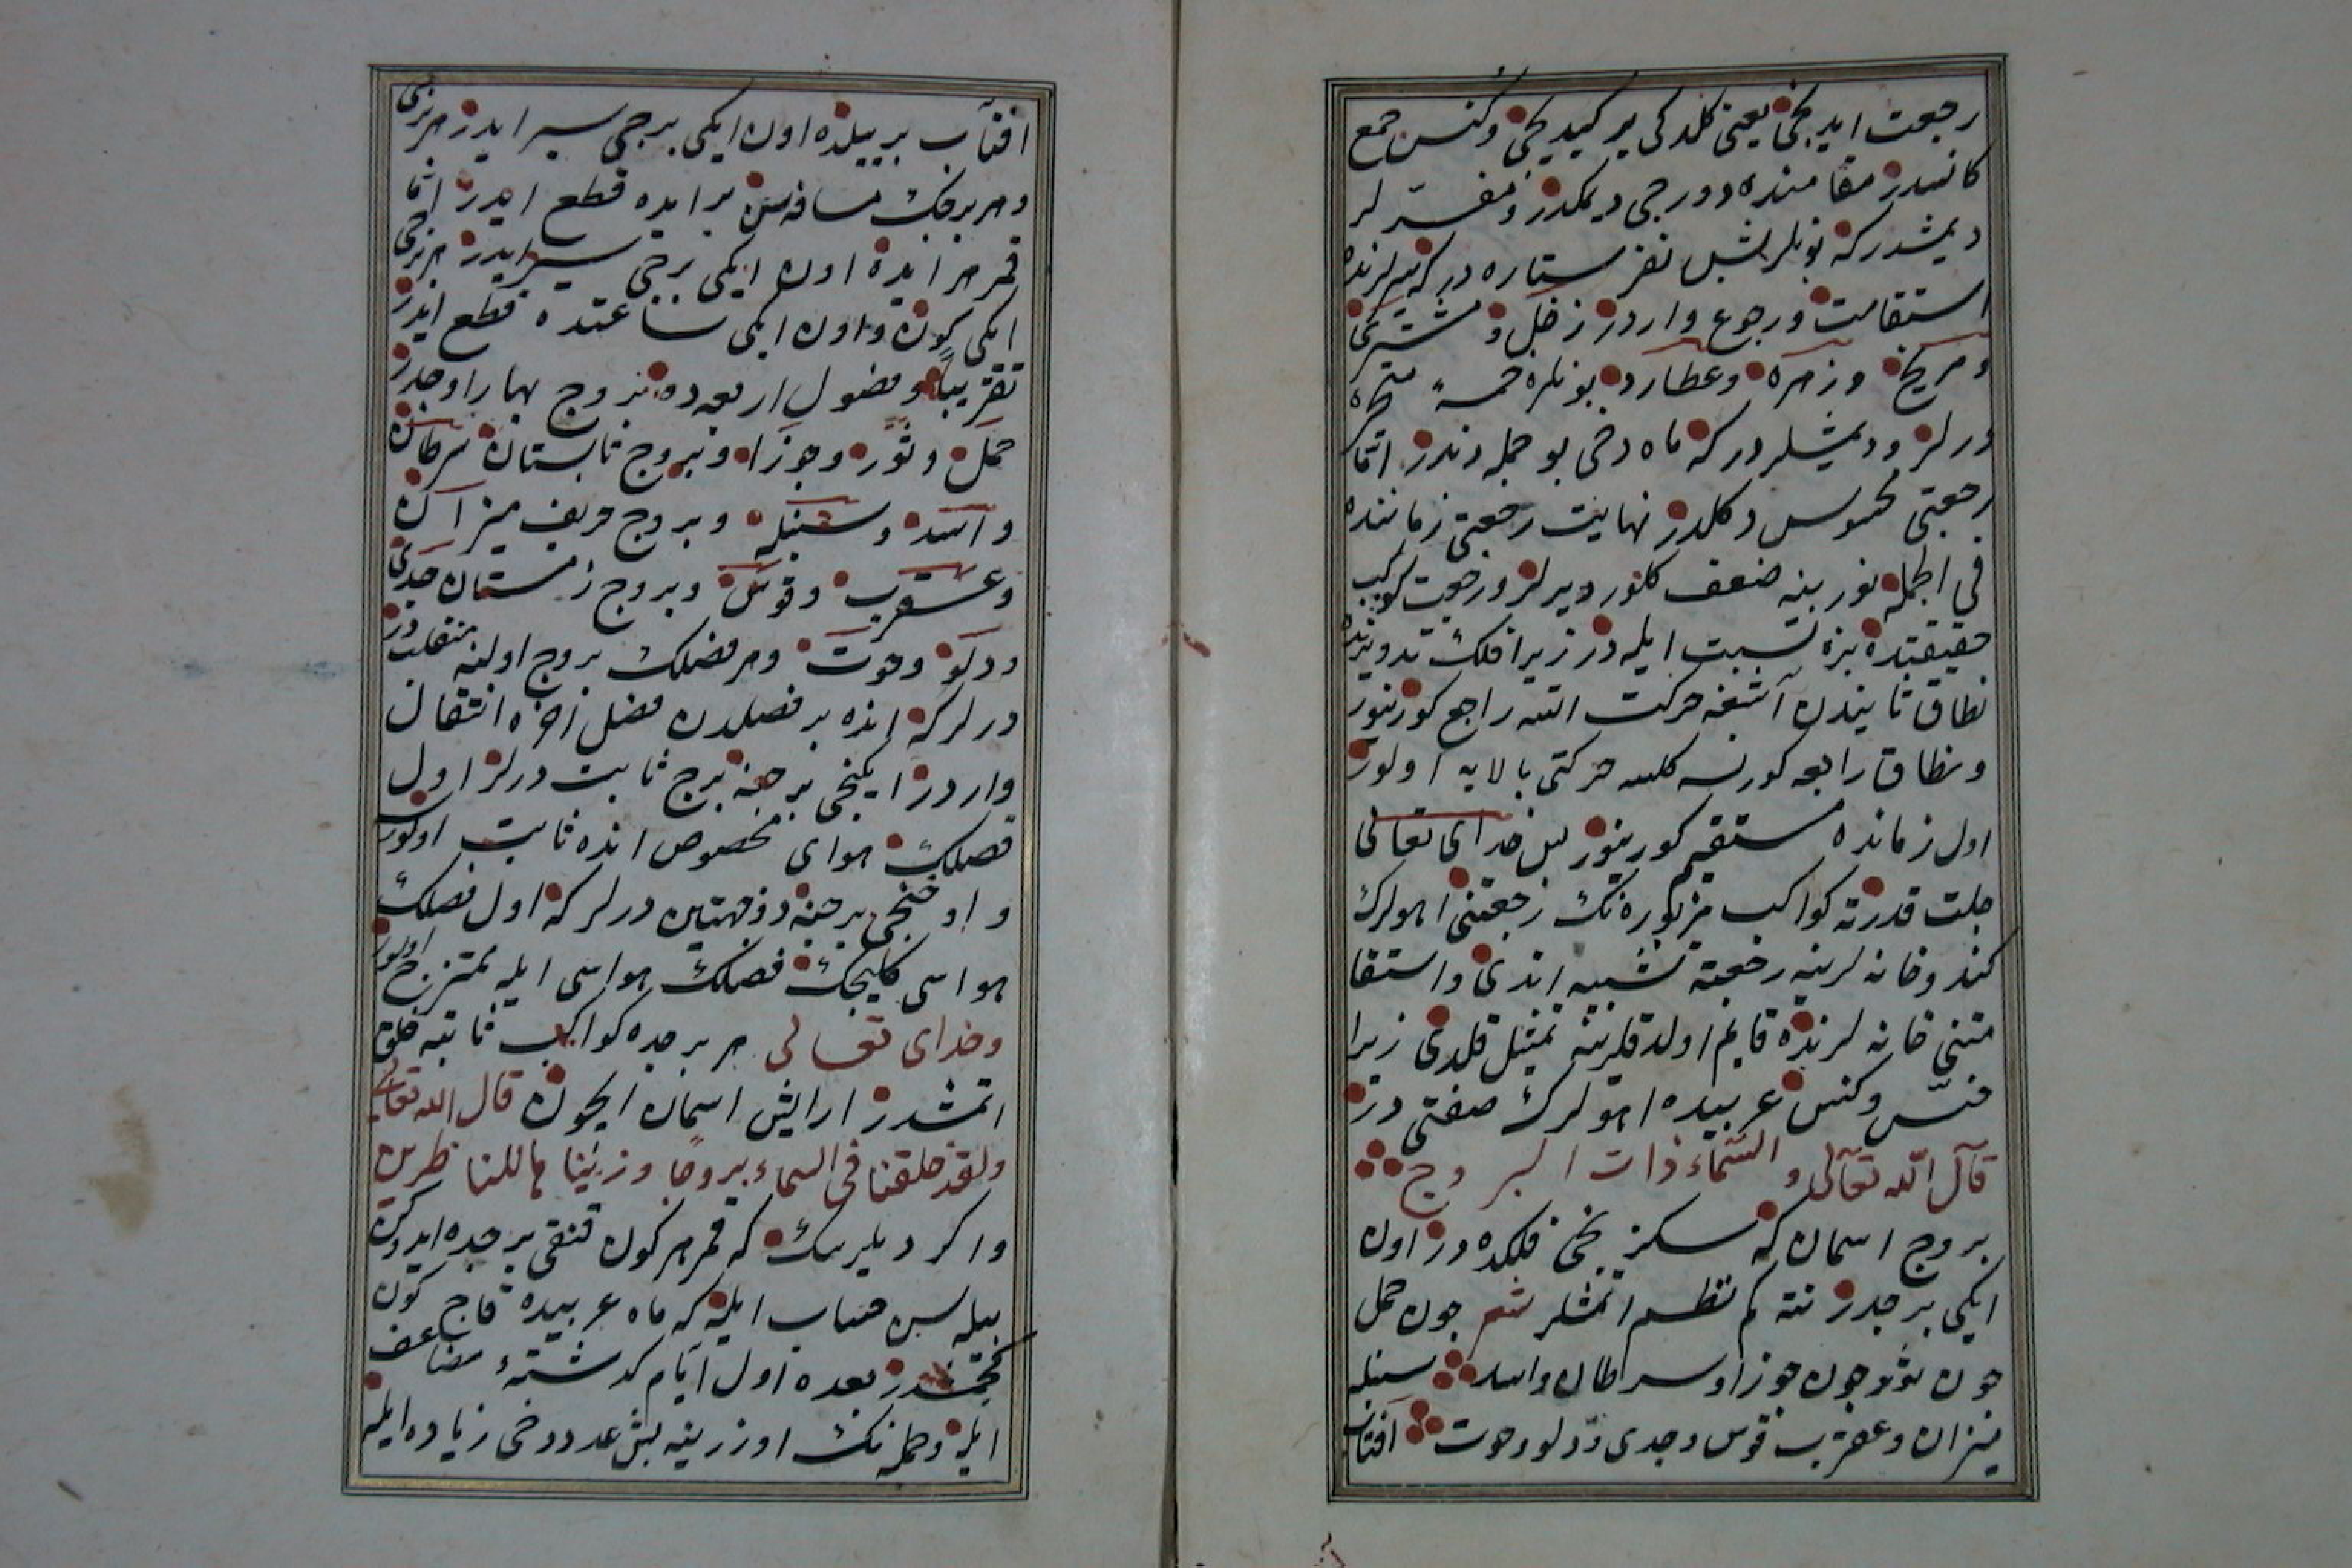 رجعت ایدیجی یعنی کلدکی یره کیدیجی وکنس جمع
کانسدر مقامنده دورجی دیمکدر ومفسّرلر
دیمشدر که بونلر بش نفر ستاره در که سیرلرنده
استقامت ورجوع واردر زحل ومشتری
ومریخ وزهره وعطارد بونلره خمسهٔ متحیره
درلر ودیمشلردر که ماه دخی بو جمله دندر اما
رجعتی محسوس دکلدر نهایت رجعتی زماننده
فی الجمله نورینه ضعف کلور دیرلر ورجعت کواکب
حقیقتده بزه نسبت ایله در زیرا فلک تدویرنده
نطاق ثانیدن آشغه حرکت اتسه راجع کورینور
ونطاق رابعه کورنسه کلسه حرکتی بالایه اولور
اول زمانده مستقیم کورینور پس خدای تعالی
جلت قدرته کواکب مزبوره نک رجعتنی اهولرک
کندو خانه لرینه رجعته تشبیه اتدی واستقا
متنی خانه لرنده قایم اولدقلرینه تمثیل قلدی زیرا
خنّس وکنس عربیده اهولرک صفتی در
قال الله تعالی والسّماء ذات البروج
بروج اسمان که سکزنجی فلکده در اون
ایکی برجدر نته کم نظم اتمشلر شعر چون حمل
چون ثور چون جوزا وسرطان واسد سنبله
میزان وعقرب قوس وجدی ودلو وحوت آفتاب
افتآب بر ییلده اون ایکی برجی سیر ایدر هر برجی
وهر برجک مسافه سن بر ایده قطع ایدر اما
قمر هر ایده اون ایکی برجی سیر ایدر هر برجی
ایکی کون واون ایکی ساعتده قطع ایدر
تقریباً وفصول اربعه ده بروج بهار اوچدر
حمل وثور وجوزا وبروج تابستان سرطان
واسد وسنبله وبروج خریف میزان
وعقرب وقوس وبروج زمستان جدی
ودلو وحوت وهر فصلک بروج اولینه منقلب در
درلر که انده بر فصلدن فصل اخره انتقال
واردر ایکنجی برجنه برج ثابت درلر اول
فصلک هوای مخصوص انده ثابت اولور
واوچنجی برجنه ذو جهتین درلر که اول فصلک
هواسی کلیجک فصلک هواسی ایله ممتزج اولور
وخدای تعالی هر برجده کواکب ثابته خلق
اتمشدر ارایش اسمان ایچون قال الله تعالی
ولقد خلقنا فی السماء بروجا وزیّنا ها للنا ظرین
واکر دیلرسک که قمر هر کون قنقی برجده ایدوکن
بیله سن حساب ایله که ماه عربیده قاچ کون
کچمشدر بعده اول ایّام کذشتهٔ مضاعف
ایله وجمله نک اوزرینه بش عدد دخی زیاده ایله